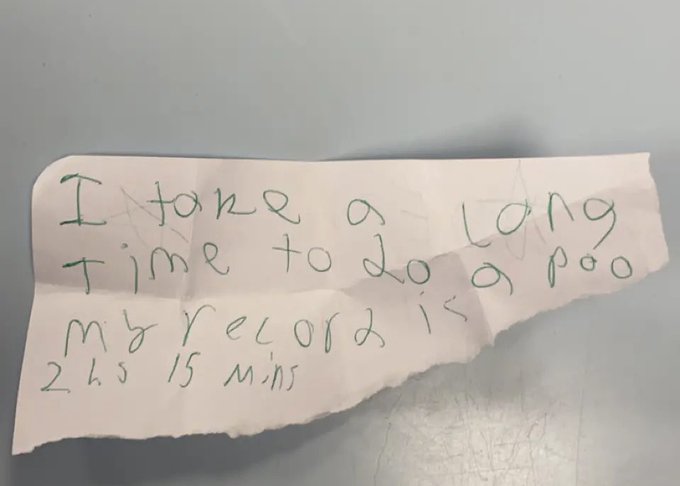 I take a long
Time to do a poo
my record is
2 hs 15 mins